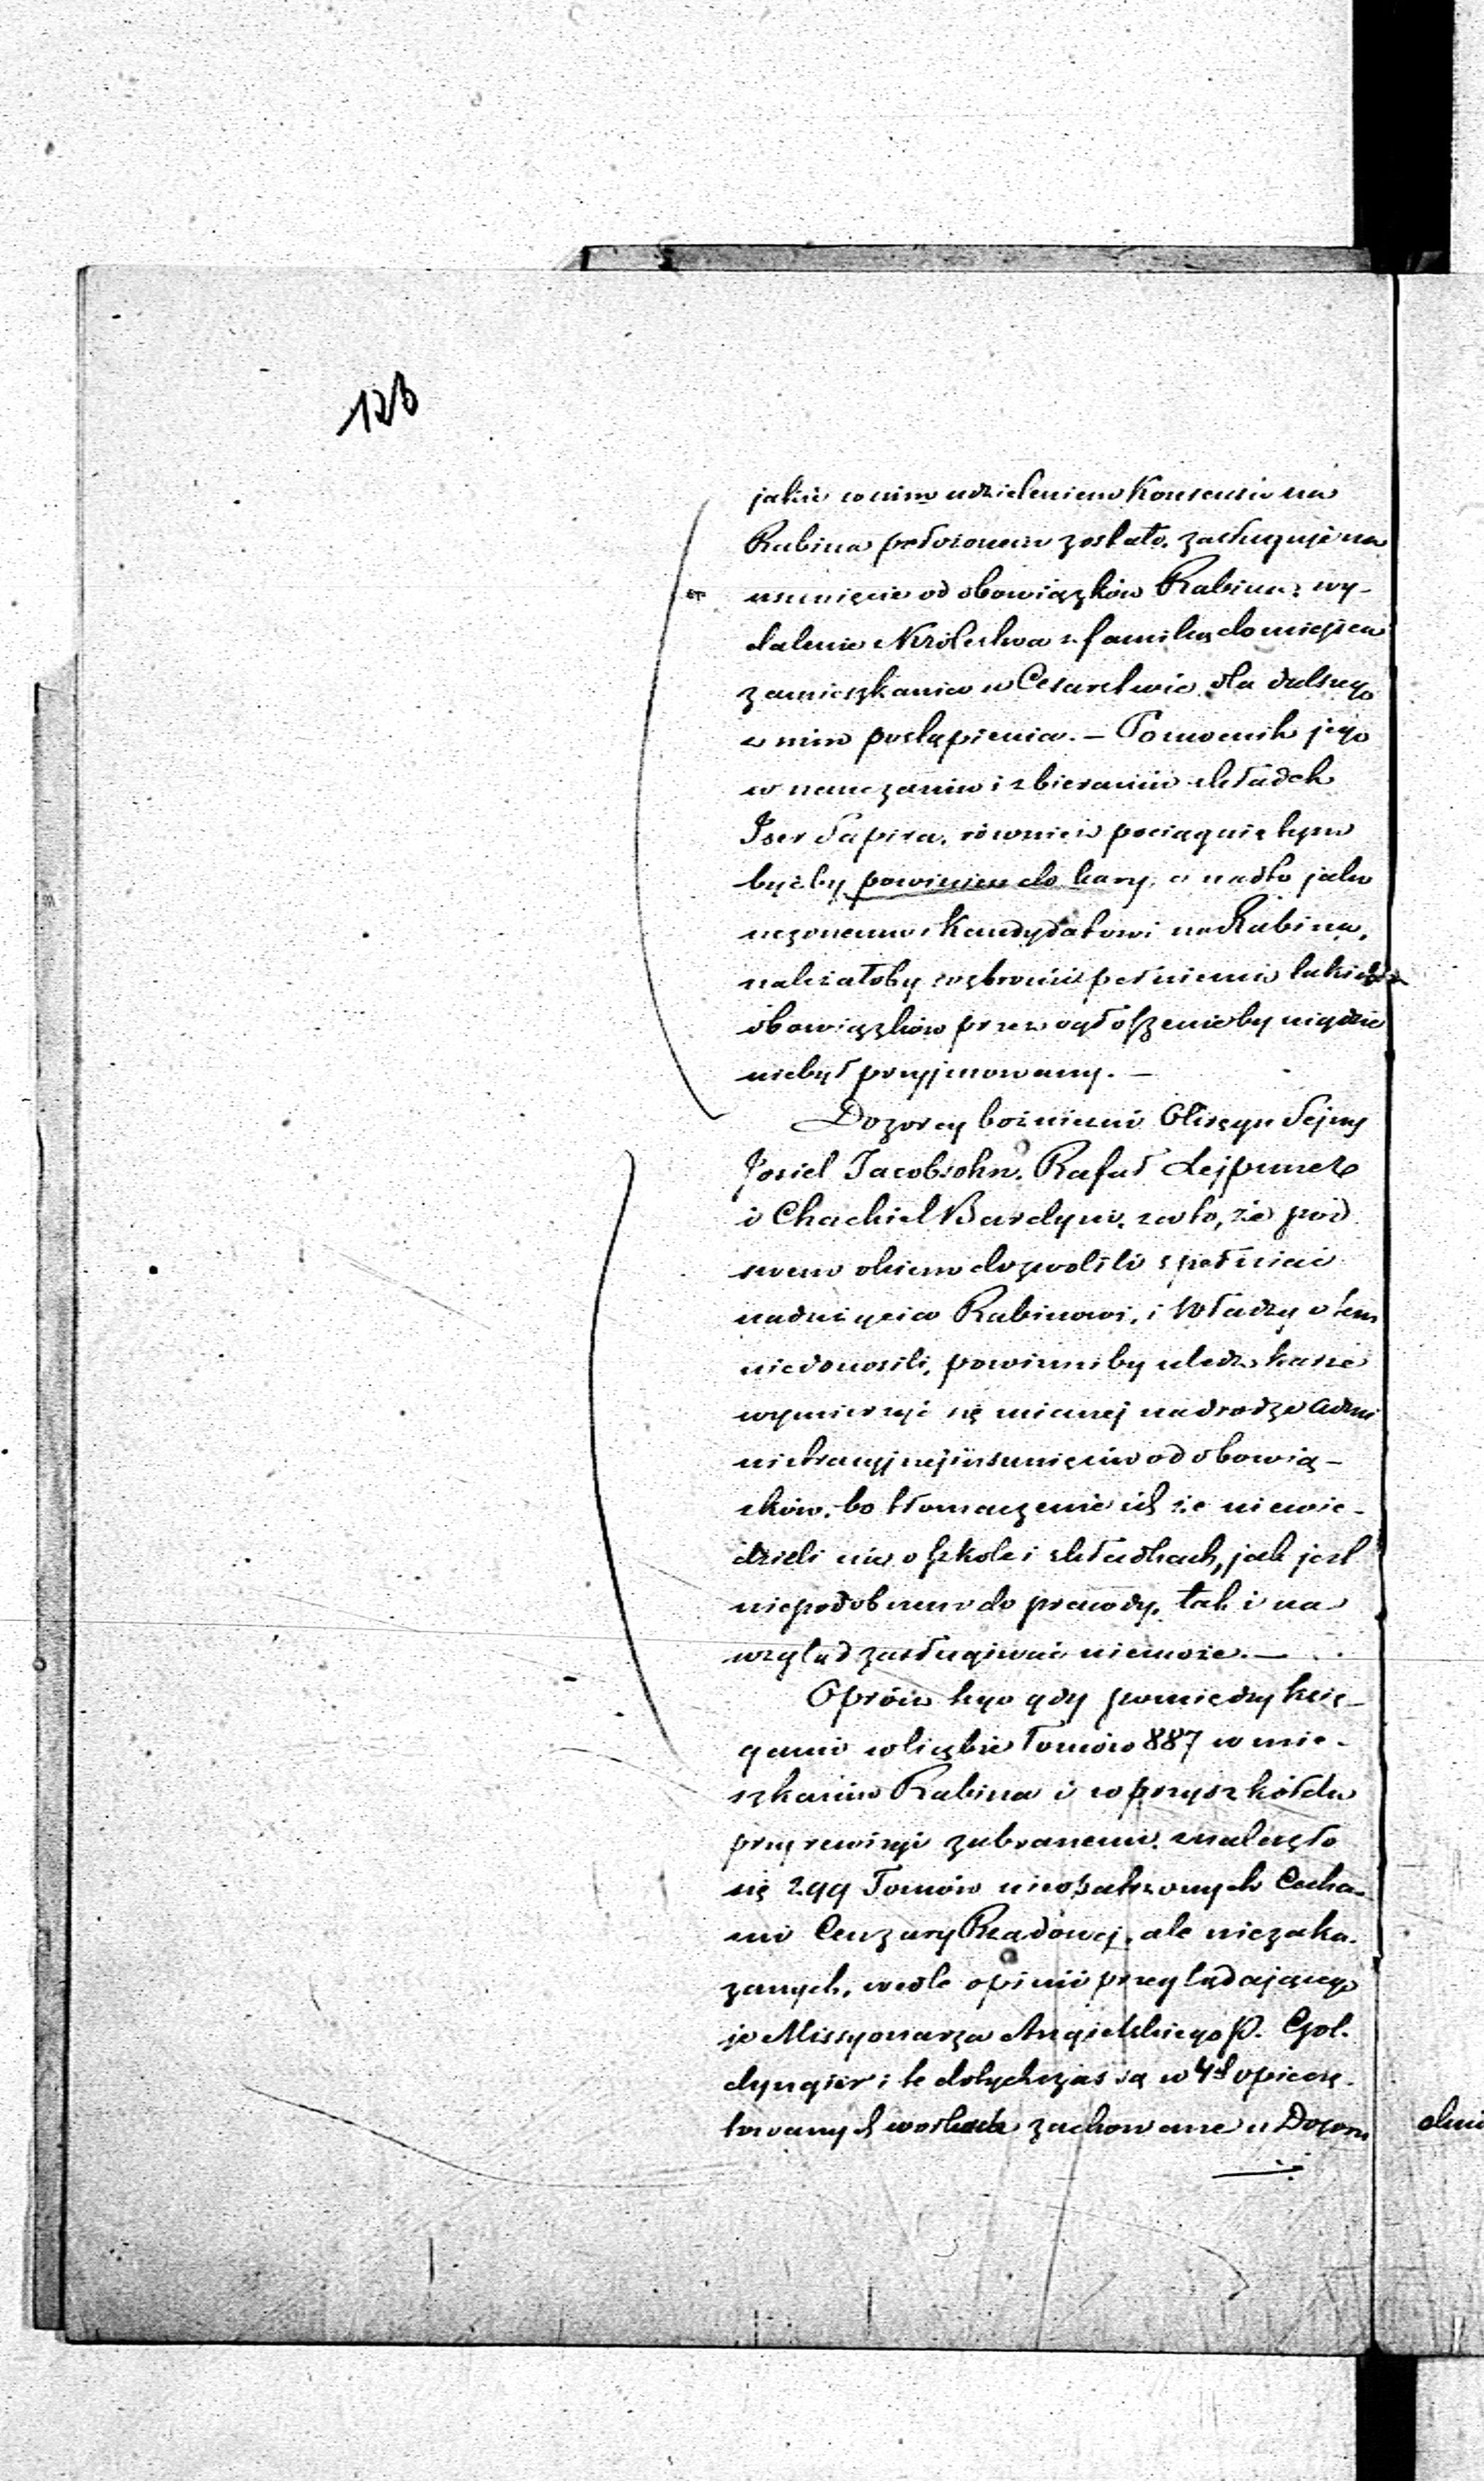 126
jakie w nim udzieleniem Konsensu na
Rabina położonem zostało. zasługuje na
usunięcie od obowiązków Rabina i wy-
dalenie z Królestwa z familią do miejsca
zamieszkania w Cesarstwie dla dalszego
z nim postąpienia. — Pomocnik jego
w nauczaniu i zbieraniu składek
Iser Sapira, również pociągniętym
byćby powinien do kary, a nadto jako
uczonemu i Kandydatowi na Rabina,
należałoby wzbronić pełnienia takich
obowiązków przez ogłoszenie by nigdzie
niebył przyjmowany. —
Dozorcy bożniczni Okręgu Sejny
Josiel Jacobsohn, Rafał Lejpuner
i Chackiel Bardyn, za to, że pod
swem okiem dozwolili spełniać
nadużycia Rabinowi, i Władzy o tem
niedonosili, powinniby uledz karze
wymierzyć się mianej na drodze Admi
nistracyjnej i usunięciu od obowią-
zków, bo tłomaczenie ich że niewie-
dzieli nic o szkole i składkach, jak jest
niepodobnem do prawdy, tak i na
wzgląd zasługiwać niemoże. —
Oprócz tego gdy pomiędzy księ-
gami w liczbie Tomów 887 w mie-
szkaniu Rabina i w przyszkółku
przy rewizyi zabranemi, znalazło
się 299 Tomów nieopatrzonych Cecha-
mi Cenzury Rządowej, ale niezaka-
zanych, wedle opinii przeglądającego
je Missyonarza Angielskiego P. Gol-
dyngier i te dotychczas są w 4ch opieczę-
towanych workach zachowane u Dozoru